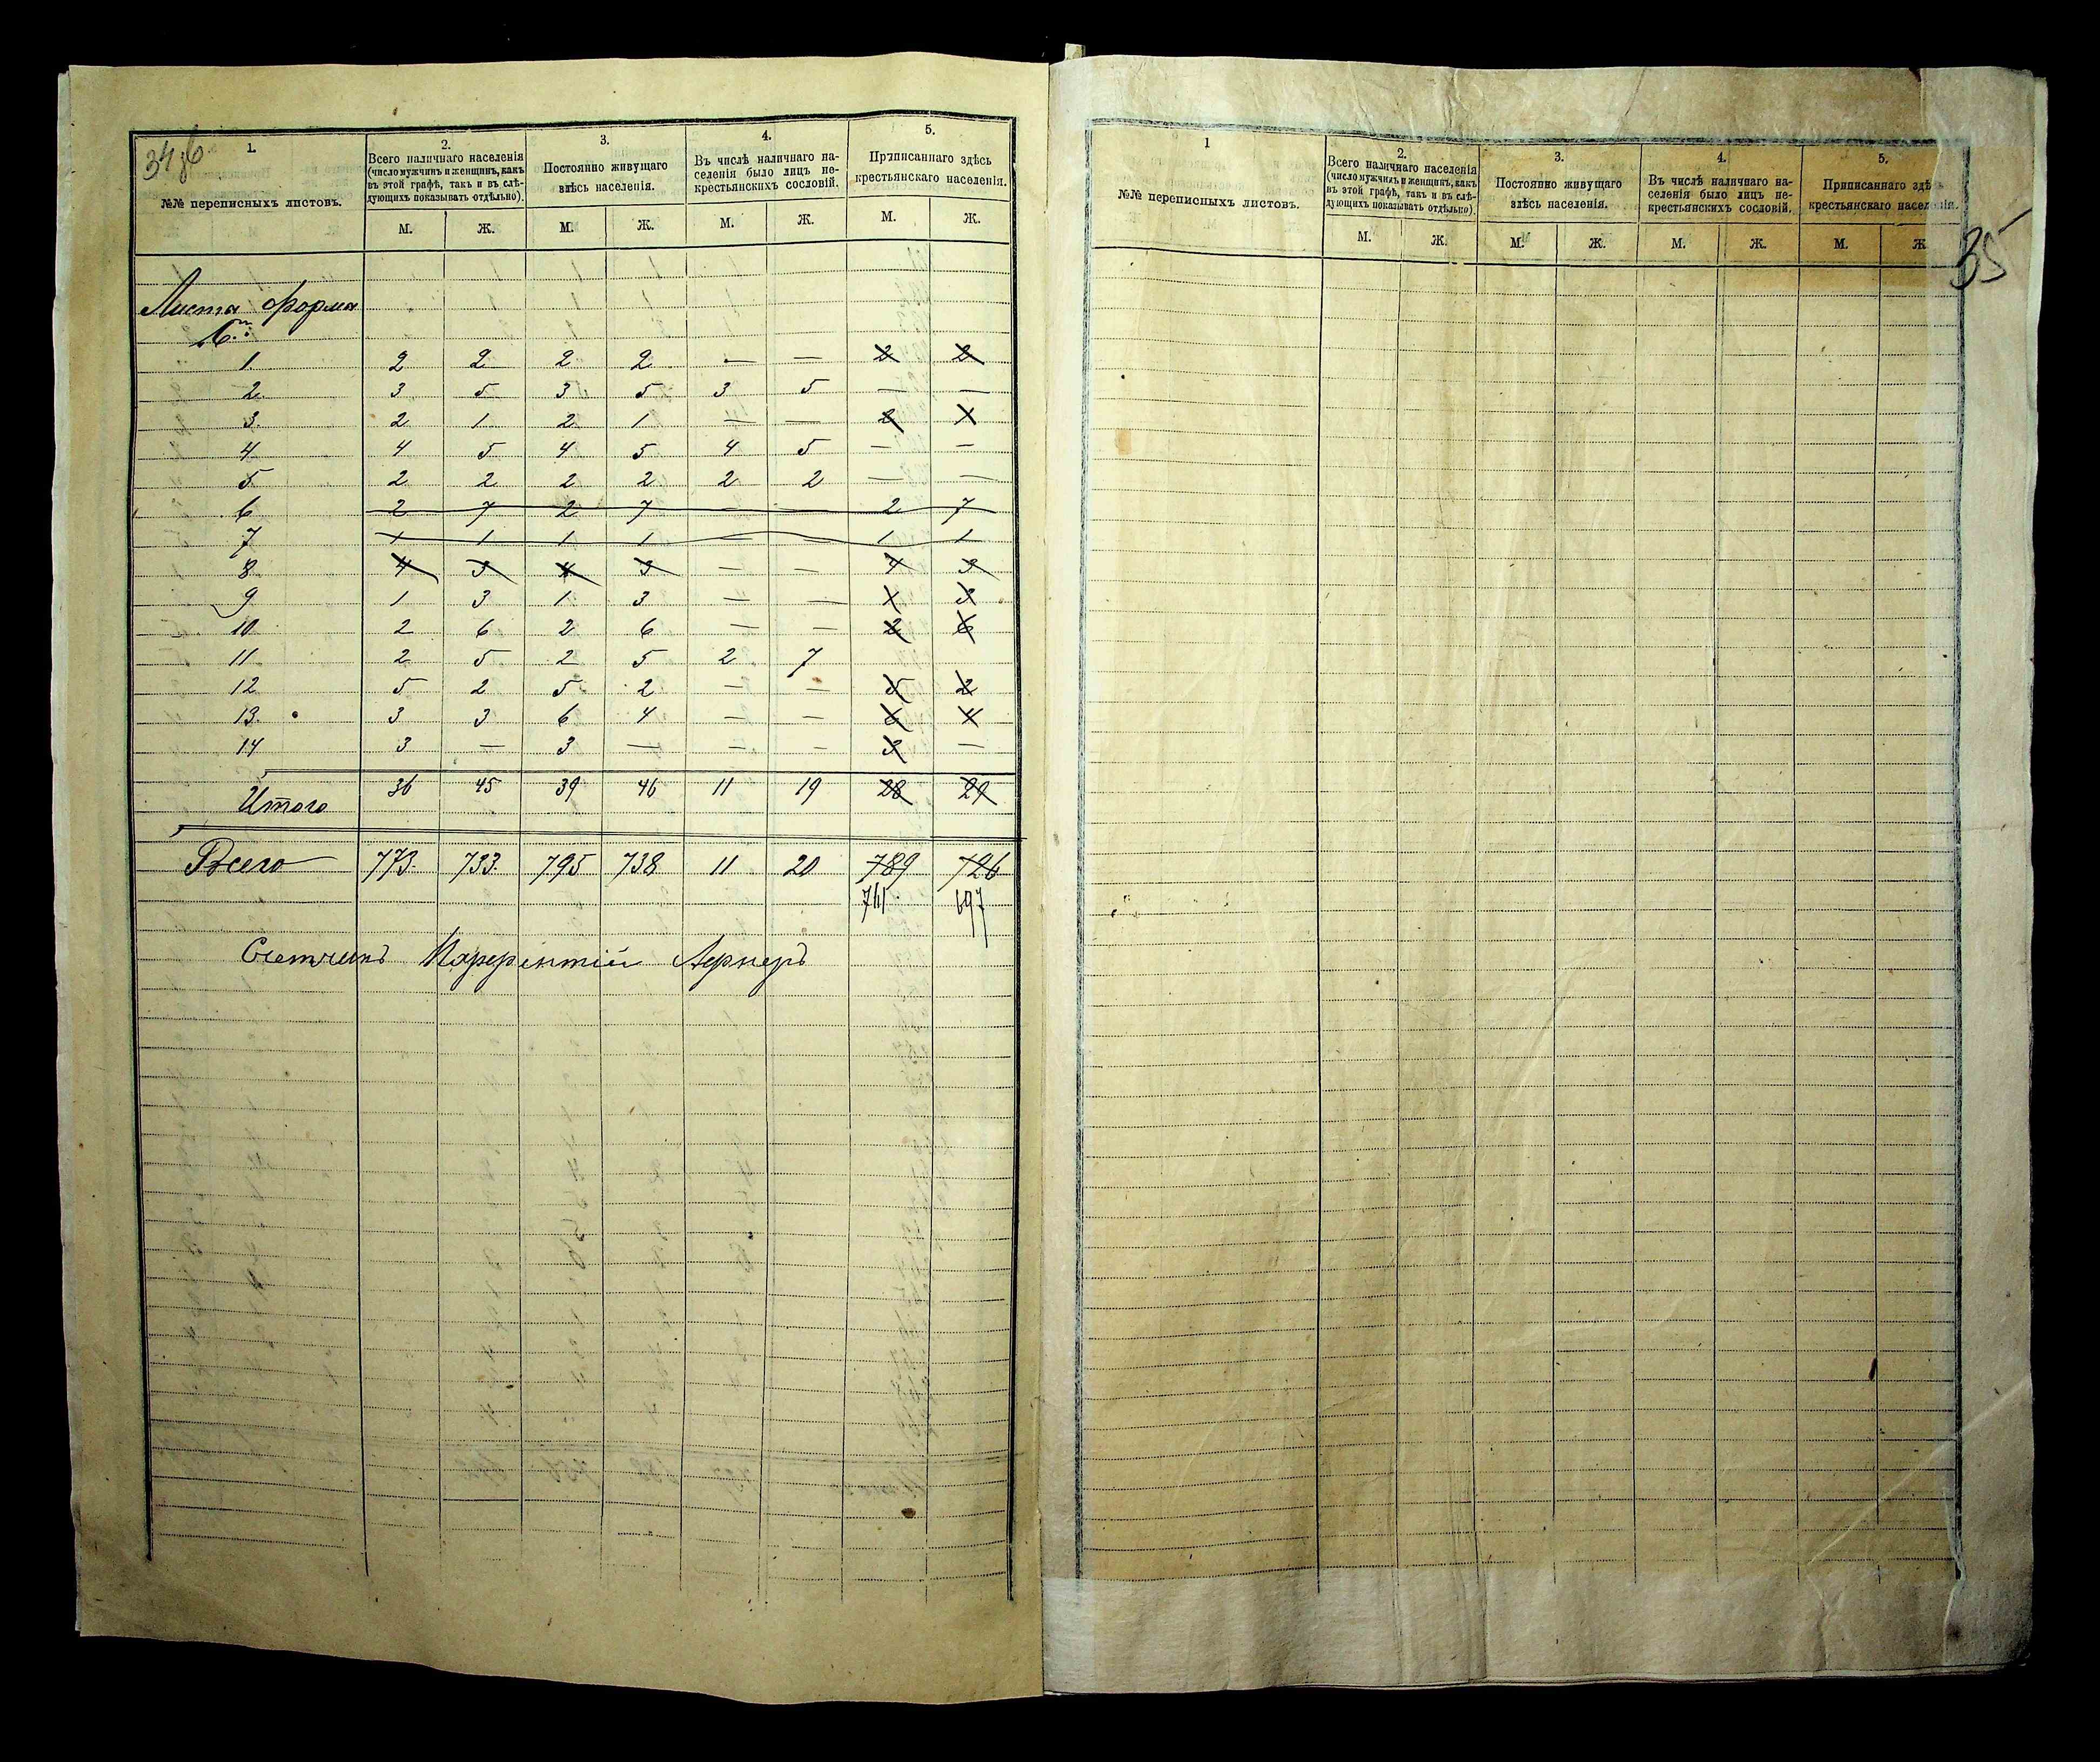 34об
1.
№№ переписныхъ листовъ.
2.
Всего наличнаго населенія
(число мужчинъ и женщинъ, какъ
въ этой графѣ, такъ и въ слѣ-
дующихъ показывать отдѣльно).
3.
Постоянно живущаго
здѣсь населенія.
4.
Въ числѣ наличнаго на-
селенія было лицъ не-
крестьянскихъ сословій.
5.
Приписаннаго здѣсь
крестьянскаго населенія.
М. Ж. М. Ж. М. Ж. М. Ж.
Листа форма
1 2 2 2 2 — — 2 2
2 3 5 3 5 3 5 — —
3. 2 1 2 1 — — 2 1
4 4 5 4 5 4 5 — —
5 2 2 2 2 2 2 — —
6 2 7 2 7 — — 2 7
7 1 1 1 1 — — 1 1
8 4 3 4 3 — — 4 3
9 1 3 1 3 — — 1 3
10 2 6 2 6 — — 2 6
11 2 5 2 5 2 7
12 5 2 5 2 — — 5 2
13. 3 3 6 4 — — 6 4
14 3 — 3 — — — 3 —
Итого 36 45 39 46 11 19 28 29
Всего 773. 733. 795 738 11 20 789 726
761 697
Счетчикъ Лернеръ
1
№№ переписныхъ листовъ.
2.
Всего наличнаго населенія
(число мужчинъ и женщинъ, какъ
въ этой графѣ, такъ и въ слѣ-
дующихъ показывать отдѣльно).
3.
Постоянно живущаго
здѣсь населенія.
4.
Въ числѣ наличнаго на-
селенія было лицъ не-
крестьянскихъ сословій.
5.
Приписаннаго здѣ
крестьянскаго населенія.
М. Ж. М. Ж. М. Ж. М. Ж
35